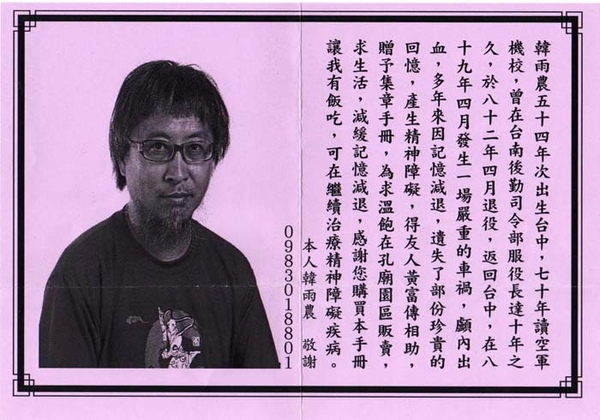 韓雨農五十四年次出生台中，七十年讀空軍
機校，曾在台南後勤司令部服役長達十年之
久，於八十二年四月退役，返回台中，在八
十九年四月發生一場嚴重的車禍，顱內出
血，多年來因記憶減退，遺失了部份珍貴的
回憶，產生精神障礙，得友人黃富傳相助，
贈予集章手冊，為求溫飽在孔廟園區販賣，
求生活，減緩記憶減退，感謝您購買本手冊
讓我有飯吃，可在繼續治療精神障礙疾病。
本人韓雨農 敬謝
0983018801